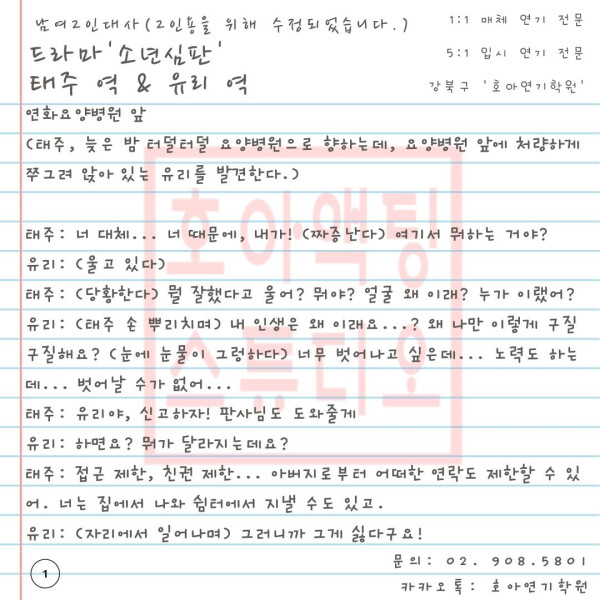 남여2인대사(2인용을 위해 수정되었습니다.)
1:1 매체 연기 전문
드라마'소년심판'
5:1 입시 연기 전문
태주 역 & 유리 역
강북구 '호아연기학원'
연화요양병원 앞
(태주, 늦은 밤 터덜터덜 요양병원으로 향하는데, 요양병원 앞에 처량하게
쭈그려 앉아 있는 유리를 발견한다.)
태주: 너 대체... 너 때문에, 내가! (짜증난다) 여기서 뭐하는 거야?
유리: (울고 있다)
태주: (당황한다) 뭘 잘했다고 울어? 뭐야? 얼굴 왜 이래? 누가 이랬어?
유리: (태주 손 뿌리치며) 내 인생은 왜 이래요...? 왜 나만 이렇게 구질
구질해요? (눈에 눈물이 그렁하다) 너무 벗어나고 싶은데... 노력도 하는
데... 벗어날 수가 없어...
태주: 유리야, 신고하자! 판사님도 도와줄게
유리: 하면요? 뭐가 달라지는데요?
태주: 접근 제한, 친권 제한... 아버지로부터 어떠한 연락도 제한할 수 있
어. 너는 집에서 나와 쉼터에서 지낼 수도 있고.
유리: (자리에서 일어나며) 그러니까 그게 싫다구요!
호아액팅
스튜디오
1
문의: 02. 908.5801
카카오톡: 호아연기학원